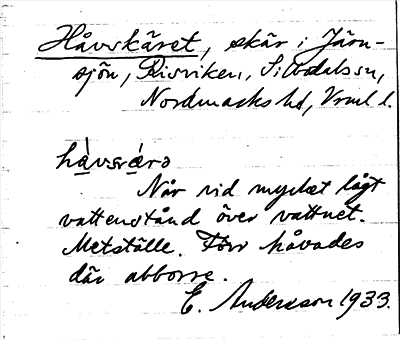 Håvskäret, skär i Järn-
sjön, Risviken, Silbodals sn,
Nordmarks hd, Vrml l.
hàvsræ̀rə
Når vid mycket lågt
vattenstånd över vattnet.
Metställe. Förr håvades
där abborre.
E. Andersson 1933.